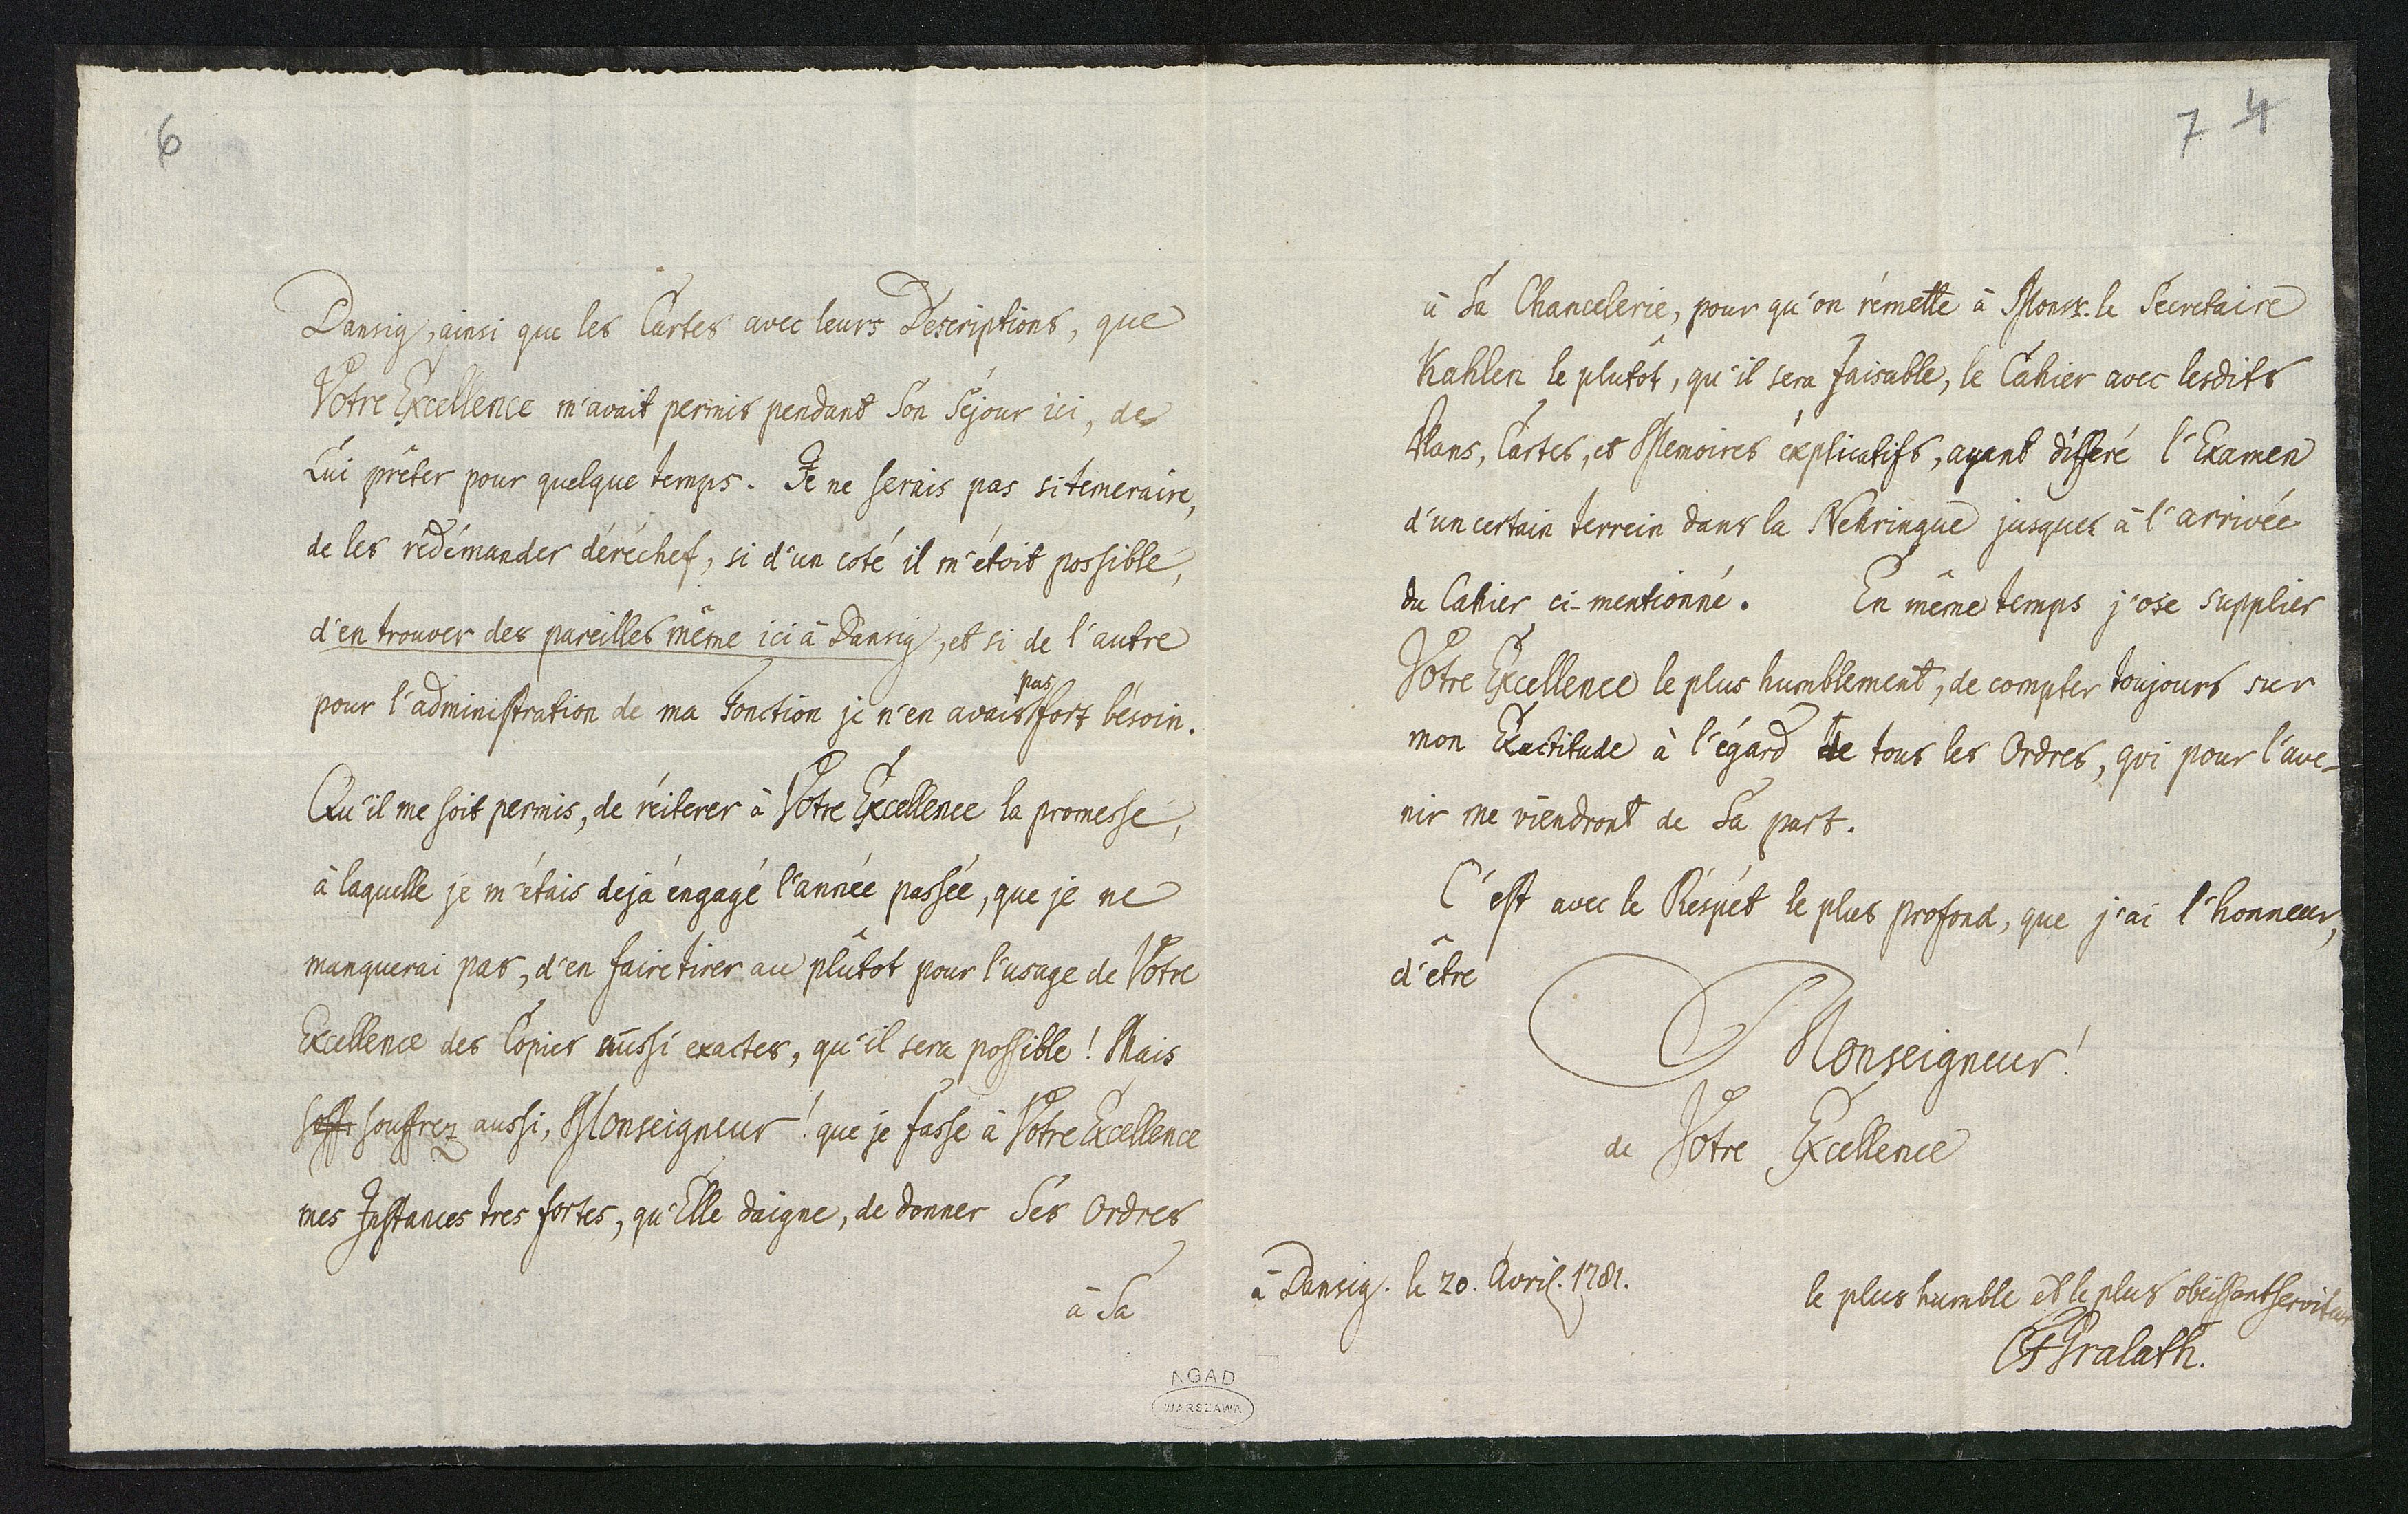 6
Dansig, ainsi que les Cartes avec leurs Descriptions, que
Votre Excellence m'avait permis pendant Son Séjour ici, de
Lui prêter pour quelque temps. Je ne serais pas si temeraire,
de les rédémander déréchef, si d'un coté il m'étoit possible,
d'en trouver des pareilles même ici à Dansig, et si de l'autre
pour l'administration de ma Fonction je n'en avais pas fort bésoin.
Qu'il me soit permis, de réiterer à Votre Excellence la promesse,
à laquelle je m'étais deja éngagé l'année passée, que je ne
manquerai pas, d'en faire tirer au plûtot pour l'usage de Votre
Excellence des Copies aussi exactes, qu'il sera possible! Mais
soffr souffrez aussi, Monseigneur! que je fasse à Votre Excellence
mes Instances tres fortes, qu'Elle daigne, de donner Ses Ordres
à Sa
7 4
à Sa Chancelerie, pour qu'on rémette à Monsr. le Secretaire
Kahlen le plutôt, qu'il sera faisable, le Cahier avec lesdits
Plans, Cartes, et Memoires éxplicatifs, ayant différé l'Examen
d'un certain terrein dans la Nehringue jusques à l'arrivée
du Cahier ci-mentionné. En même temps j'ose supplier
Votre Excellence le plus humblement, de compter toujours sur
mon Exactitude à l'égard de tous les Ordres, qui pour l'ave-
nir me viendront de Sa part.
C'est avec le Réspét le plus profond, que j'ai l'honneur,
d'être
Monseigneur!
de Votre Excellence
à Dansig. le 20. Avril. 1781.
le plus humble et le plus obéissant serviteur
CFGralath.
AGAD
WARSZAWA